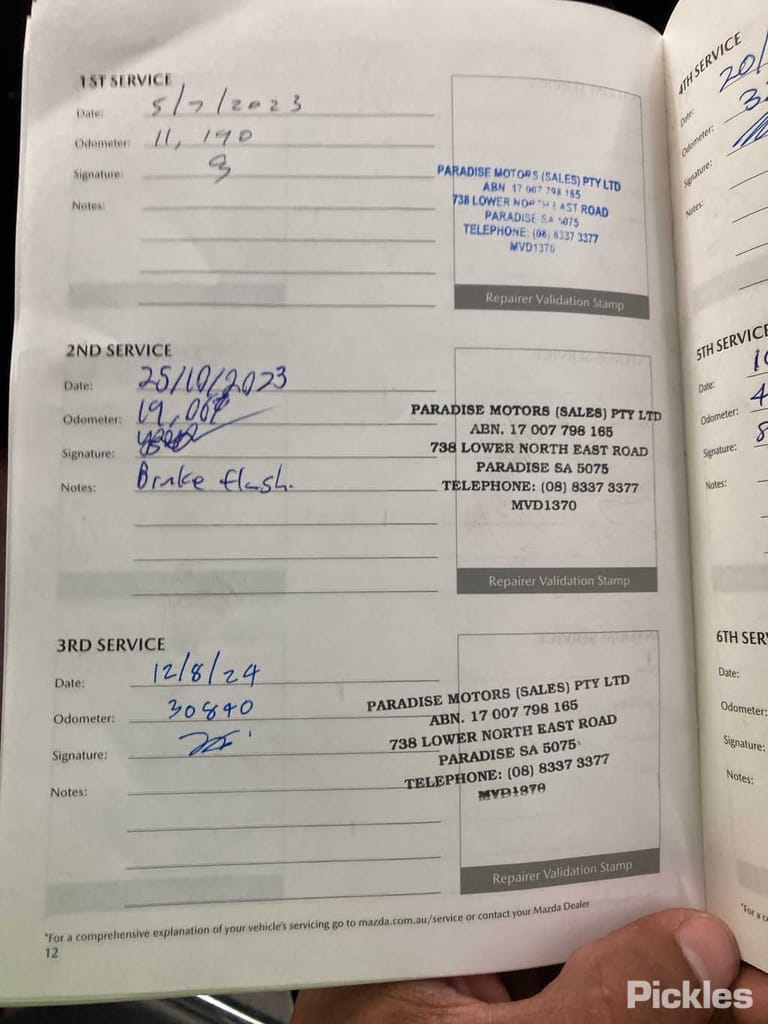 1ST SERVICE
Date: 5/7/2023
Odometer: 11,190
Signature:
Notes:
PARADISE MOTORS (SALES) PTY LTD
ABN 17 007 798 165
738 LOWER NORTH EAST ROAD
PARADISE SA 5075
TELEPHONE: (08) 8337 3377
MVD1370
Repairer Validation Stamp
2ND SERVICE
Date: 25/10/2023
Odometer: 19,007
Signature:
Notes: Brake flush.
PARADISE MOTORS (SALES) PTY LTD
ABN. 17 007 798 165
738 LOWER NORTH EAST ROAD
PARADISE SA 5075
TELEPHONE: (08) 8337 3377
MVD1370
Repairer Validation Stamp
3RD SERVICE
Date: 12/8/24
Odometer: 30840
Signature:
Notes:
PARADISE MOTORS (SALES) PTY LTD
ABN. 17 007 798 165
738 LOWER NORTH EAST ROAD
PARADISE SA 5075
TELEPHONE: (08) 8337 3377
MVD1370
Repairer Validation Stamp
*For a comprehensive explanation of your vehicle's servicing go to mazda.com.au/service or contact your Mazda Dealer
12
4TH SERVICE
Date: 20/
Odometer: 3
Signature:
Notes:
5TH SERVICE
Date: 1
Odometer: 4
Signature:
Notes:
6TH SER
Date:
Odometer:
Signature:
Notes:
*For a c
Pickles